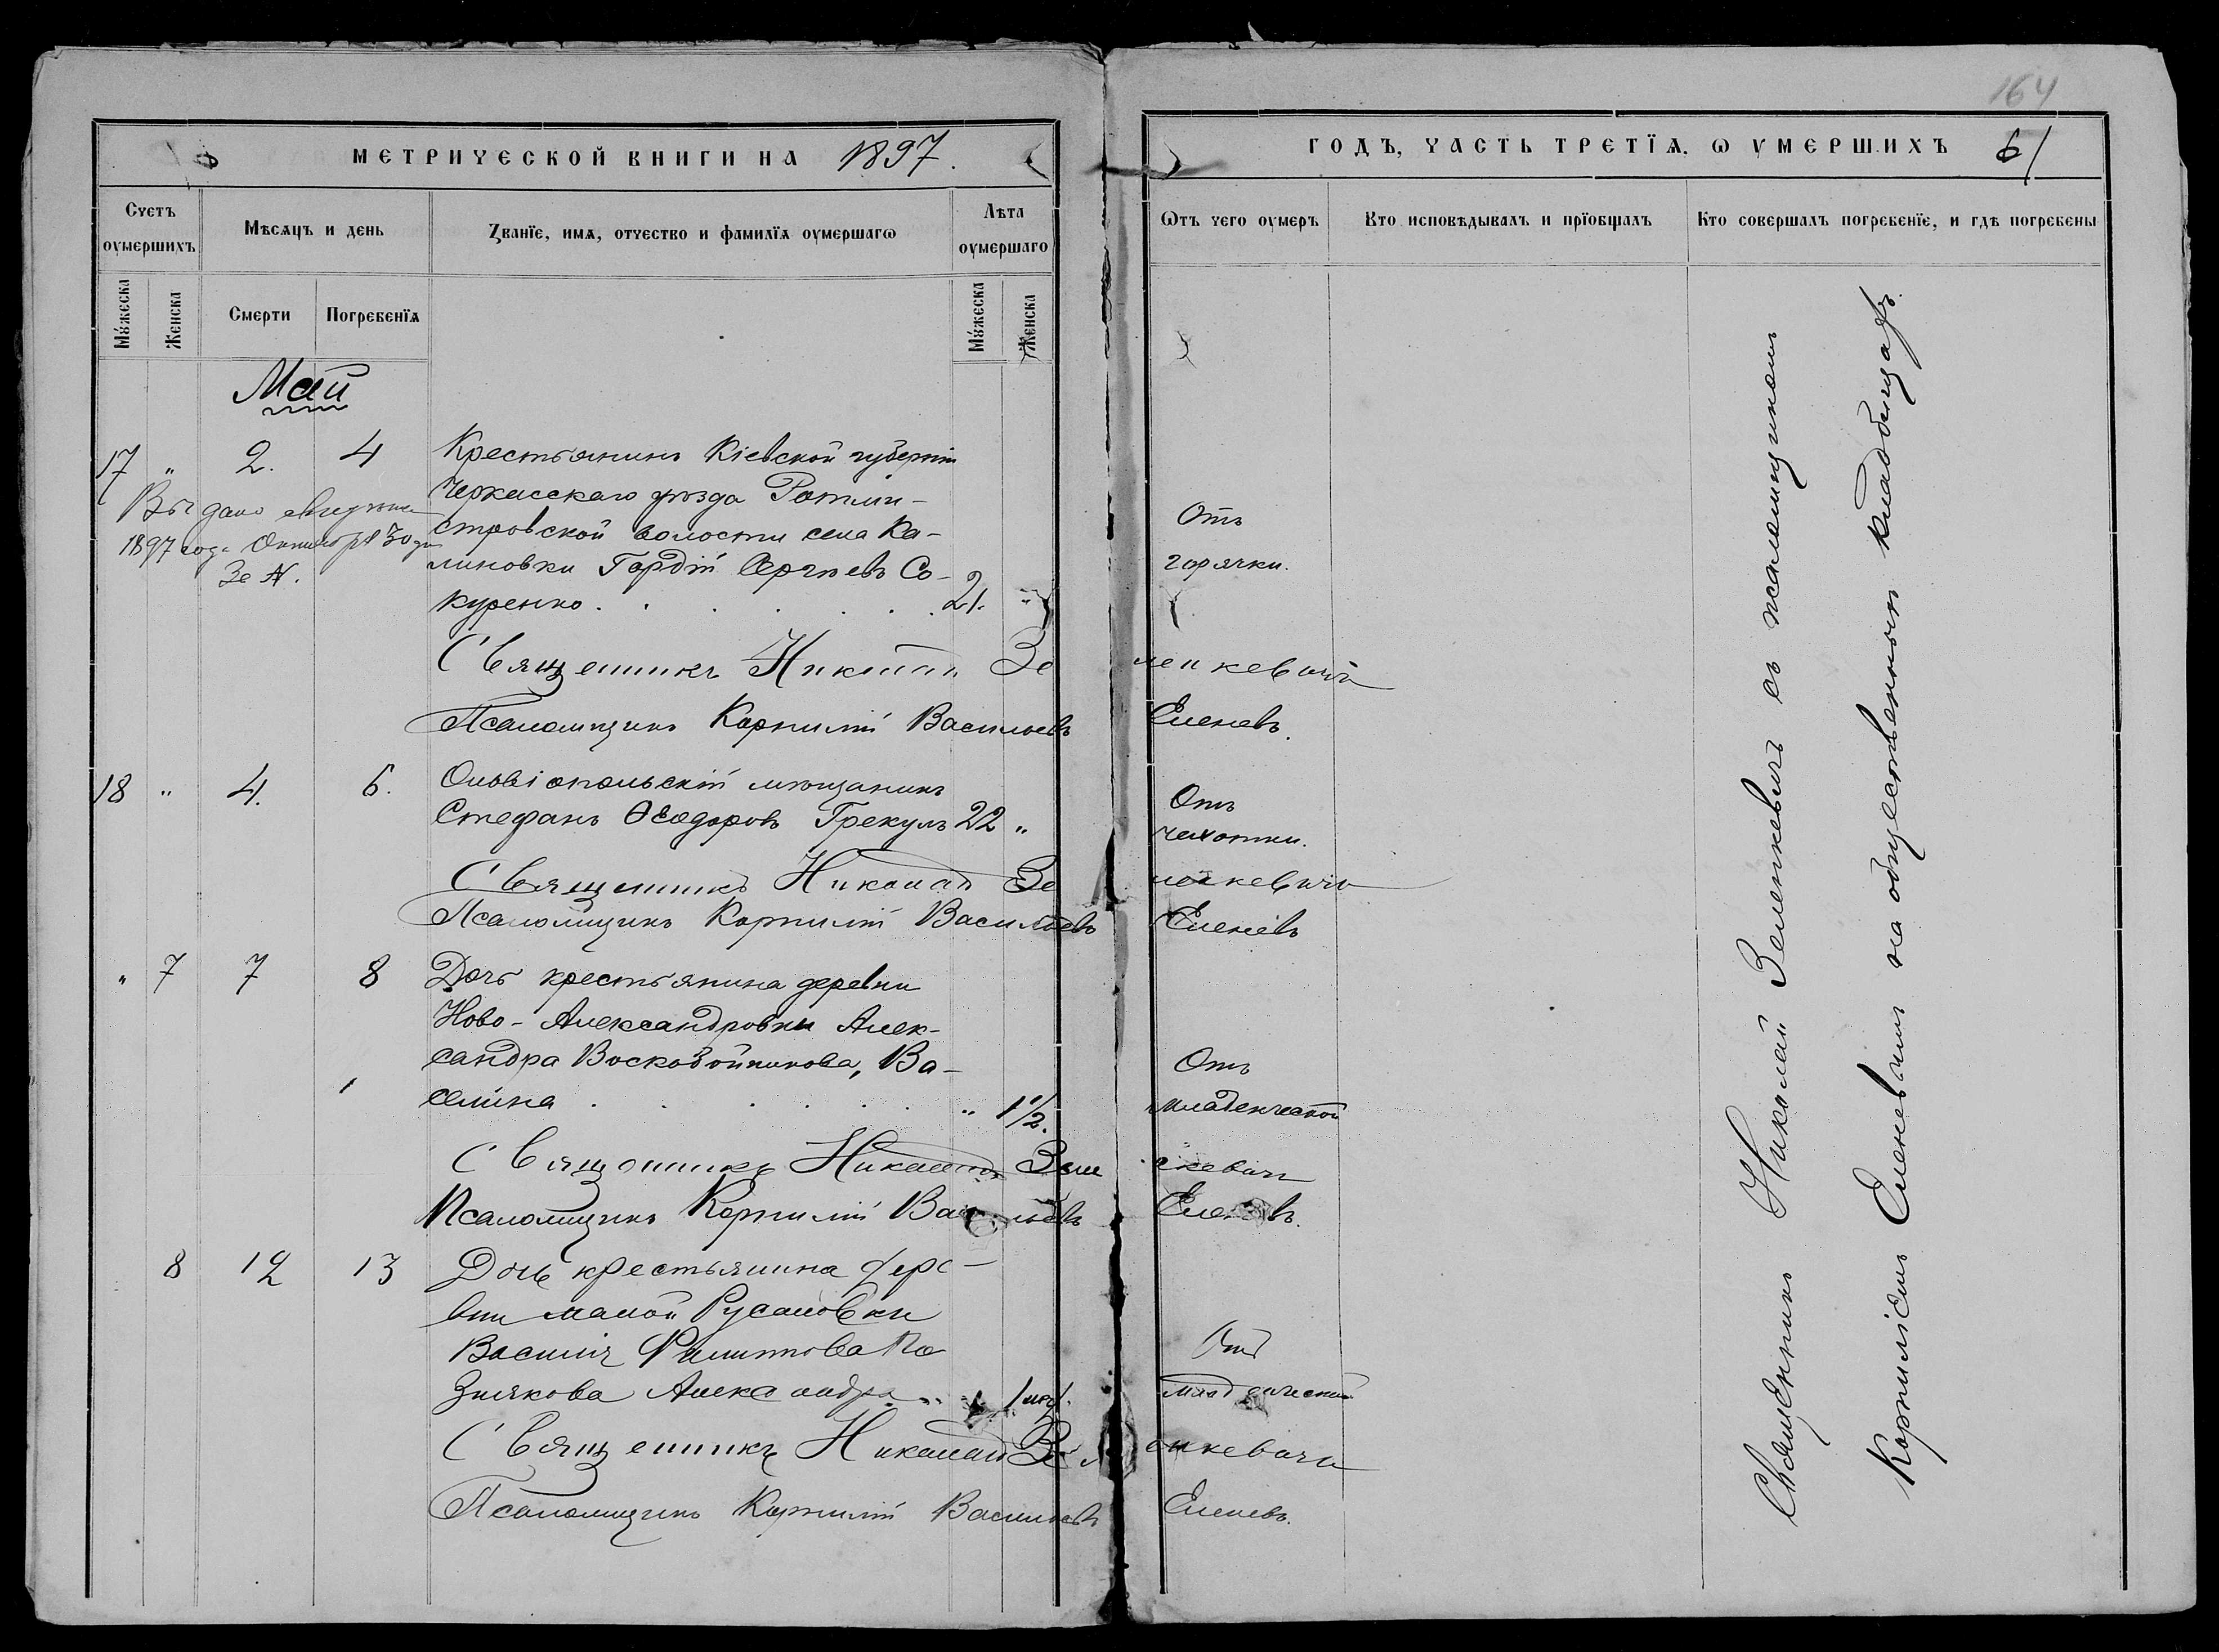 164
МЕТРИЧЕСКОЙ КНИГИ НА 1897.
ГОДЪ, ЧАСТЬ ТРЕТЇѦ. Ѡ УМЕРШИХЪ 61
Счетъ оумершихъ
Мѣсѧцъ и день
Званїе, имѧ, отчество и фамилїѧ оумершагѡ
Лѣта оумершаго
Ѿтъ чего оумеръ
Кто исповѣдывалъ и прїобщалъ
Кто совершалъ погребенїе, и гдѣ погребены
Мꙋжеска
Женска
Смерти
Погребенїѧ
Мꙋжеска
Женска
Май
17 " 2. 4 Крестьянинъ Кіевской губерніи
Черкасскаго уѣзда Ротми-
стровской волости села Ка-
линовки Гордій Сергѣевъ Со-
куренко . . . . . . 21. "
Отъ
горячки.
Выдано
1897 года Октября 30 дня
Зе N.
Священникъ Николай Зеленкевичъ
Псаломщикъ Корнилій Васильевъ Еленевъ.
18 " 4. 6. Ольвіопольскій мѣщанинъ
Стефанъ Ѳеодоровъ Грекулъ 22 "
Отъ
чахотки.
Священникъ Николай Зеленкевичъ
Псаломщикъ Корнилій Васильевъ Еленевъ
" 7 7 8 Дочь крестьянина деревни
Ново-Александровки Алек-
сандра Воскобойникова, Ва-
силина . . . . . . " 1 1/2.
Отъ
младенческой
Священникъ Николай Зеленкевичъ
Псаломщикъ Корнилій Васильевъ Еленевъ.
8 12 13 Дочь крестьянина дере-
вни малой Русаловки
Василія Филиппова По
Александра 1
Отъ
младенческой
Священникъ Николай Зеленкевичъ
Псаломщикъ Корнилій Васильевъ Еленевъ.
Священникъ Николай Зеленкевичъ съ псаломщикомъ
Корниліемъ Еленевымъ на общественномъ кладбищѣ.